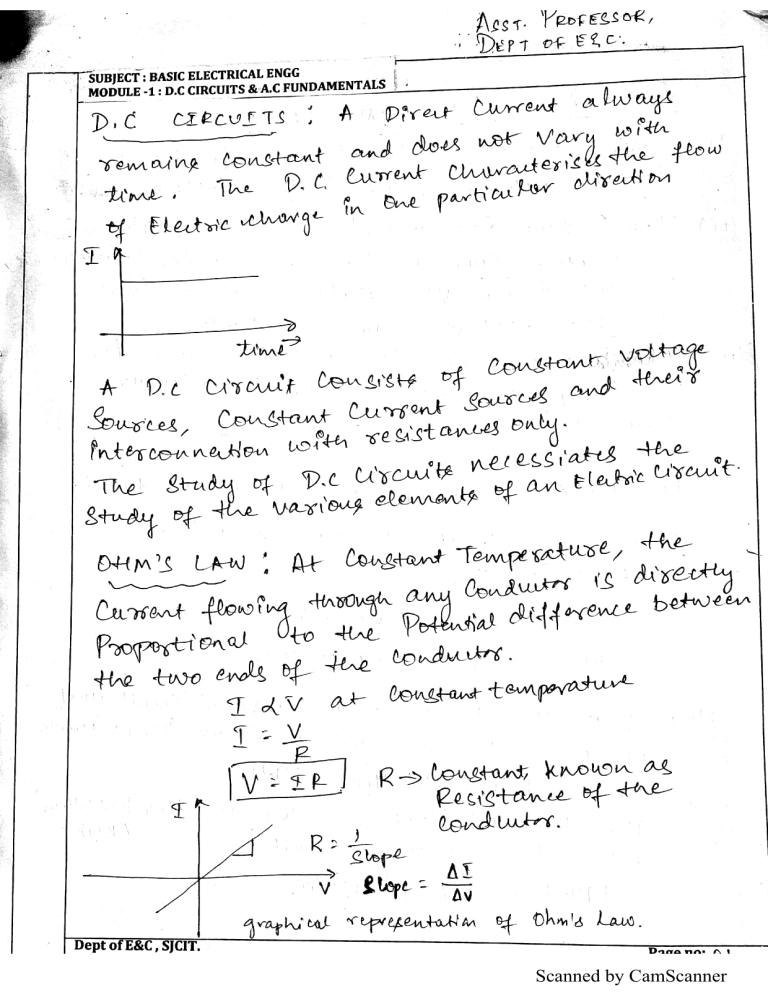 ASST. PROFESSOR,
DEPT OF E&C.
SUBJECT : BASIC ELECTRICAL ENGG
MODULE -1 : D.C CIRCUITS & A.C FUNDAMENTALS
D.C CIRCUITS : A Direct Current always
remains constant and does not vary with
time. The D.C. Current Characterises the flow
of Electric charge in one particular direction
I
time →
A D.C Circuit Consists of Constant voltage
Sources, Constant Current Sources and their
interconnection with resistances only.
The Study of D.C Circuits necessiates the
Study of the various elements of an Electric Circuit.
OHM'S LAW : At Constant Temperature, the
Current flowing through any Conductor is directly
Proportional to the Potential difference between
the two ends of the conductor.
I ∝ V at Constant temperature
I = V/R
V = IR R → Constant, known as
Resistance of the
conductor.
I
R = 1/Slope
V Slope = ΔI/ΔV
graphical representation of Ohm's Law.
Dept of E&C , SJCIT. Page no:
Scanned by CamScanner